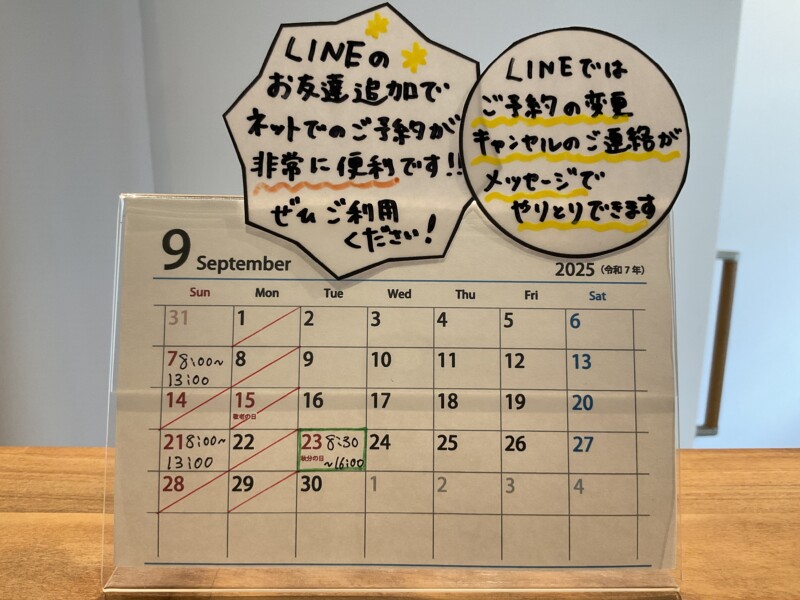 LINEの
お友達追加で
ネットでのご予約が
非常に便利です!!
ぜひご利用
ください!
LINEでは
ご予約の変更
キャンセルのご連絡が
メッセージで
やりとりできます
9 September
2025 (令和7年)
Sun Mon Tue Wed Thu Fri Sat
31 1 2 3 4 5 6
7 8:00~ 8 9 10 11 12 13
13:00
14 15 16 17 18 19 20
敬老の日
21 8:00~ 22 23 8:30 24 25 26 27
13:00 秋分の日 ~16:00
28 29 30 1 2 3 4